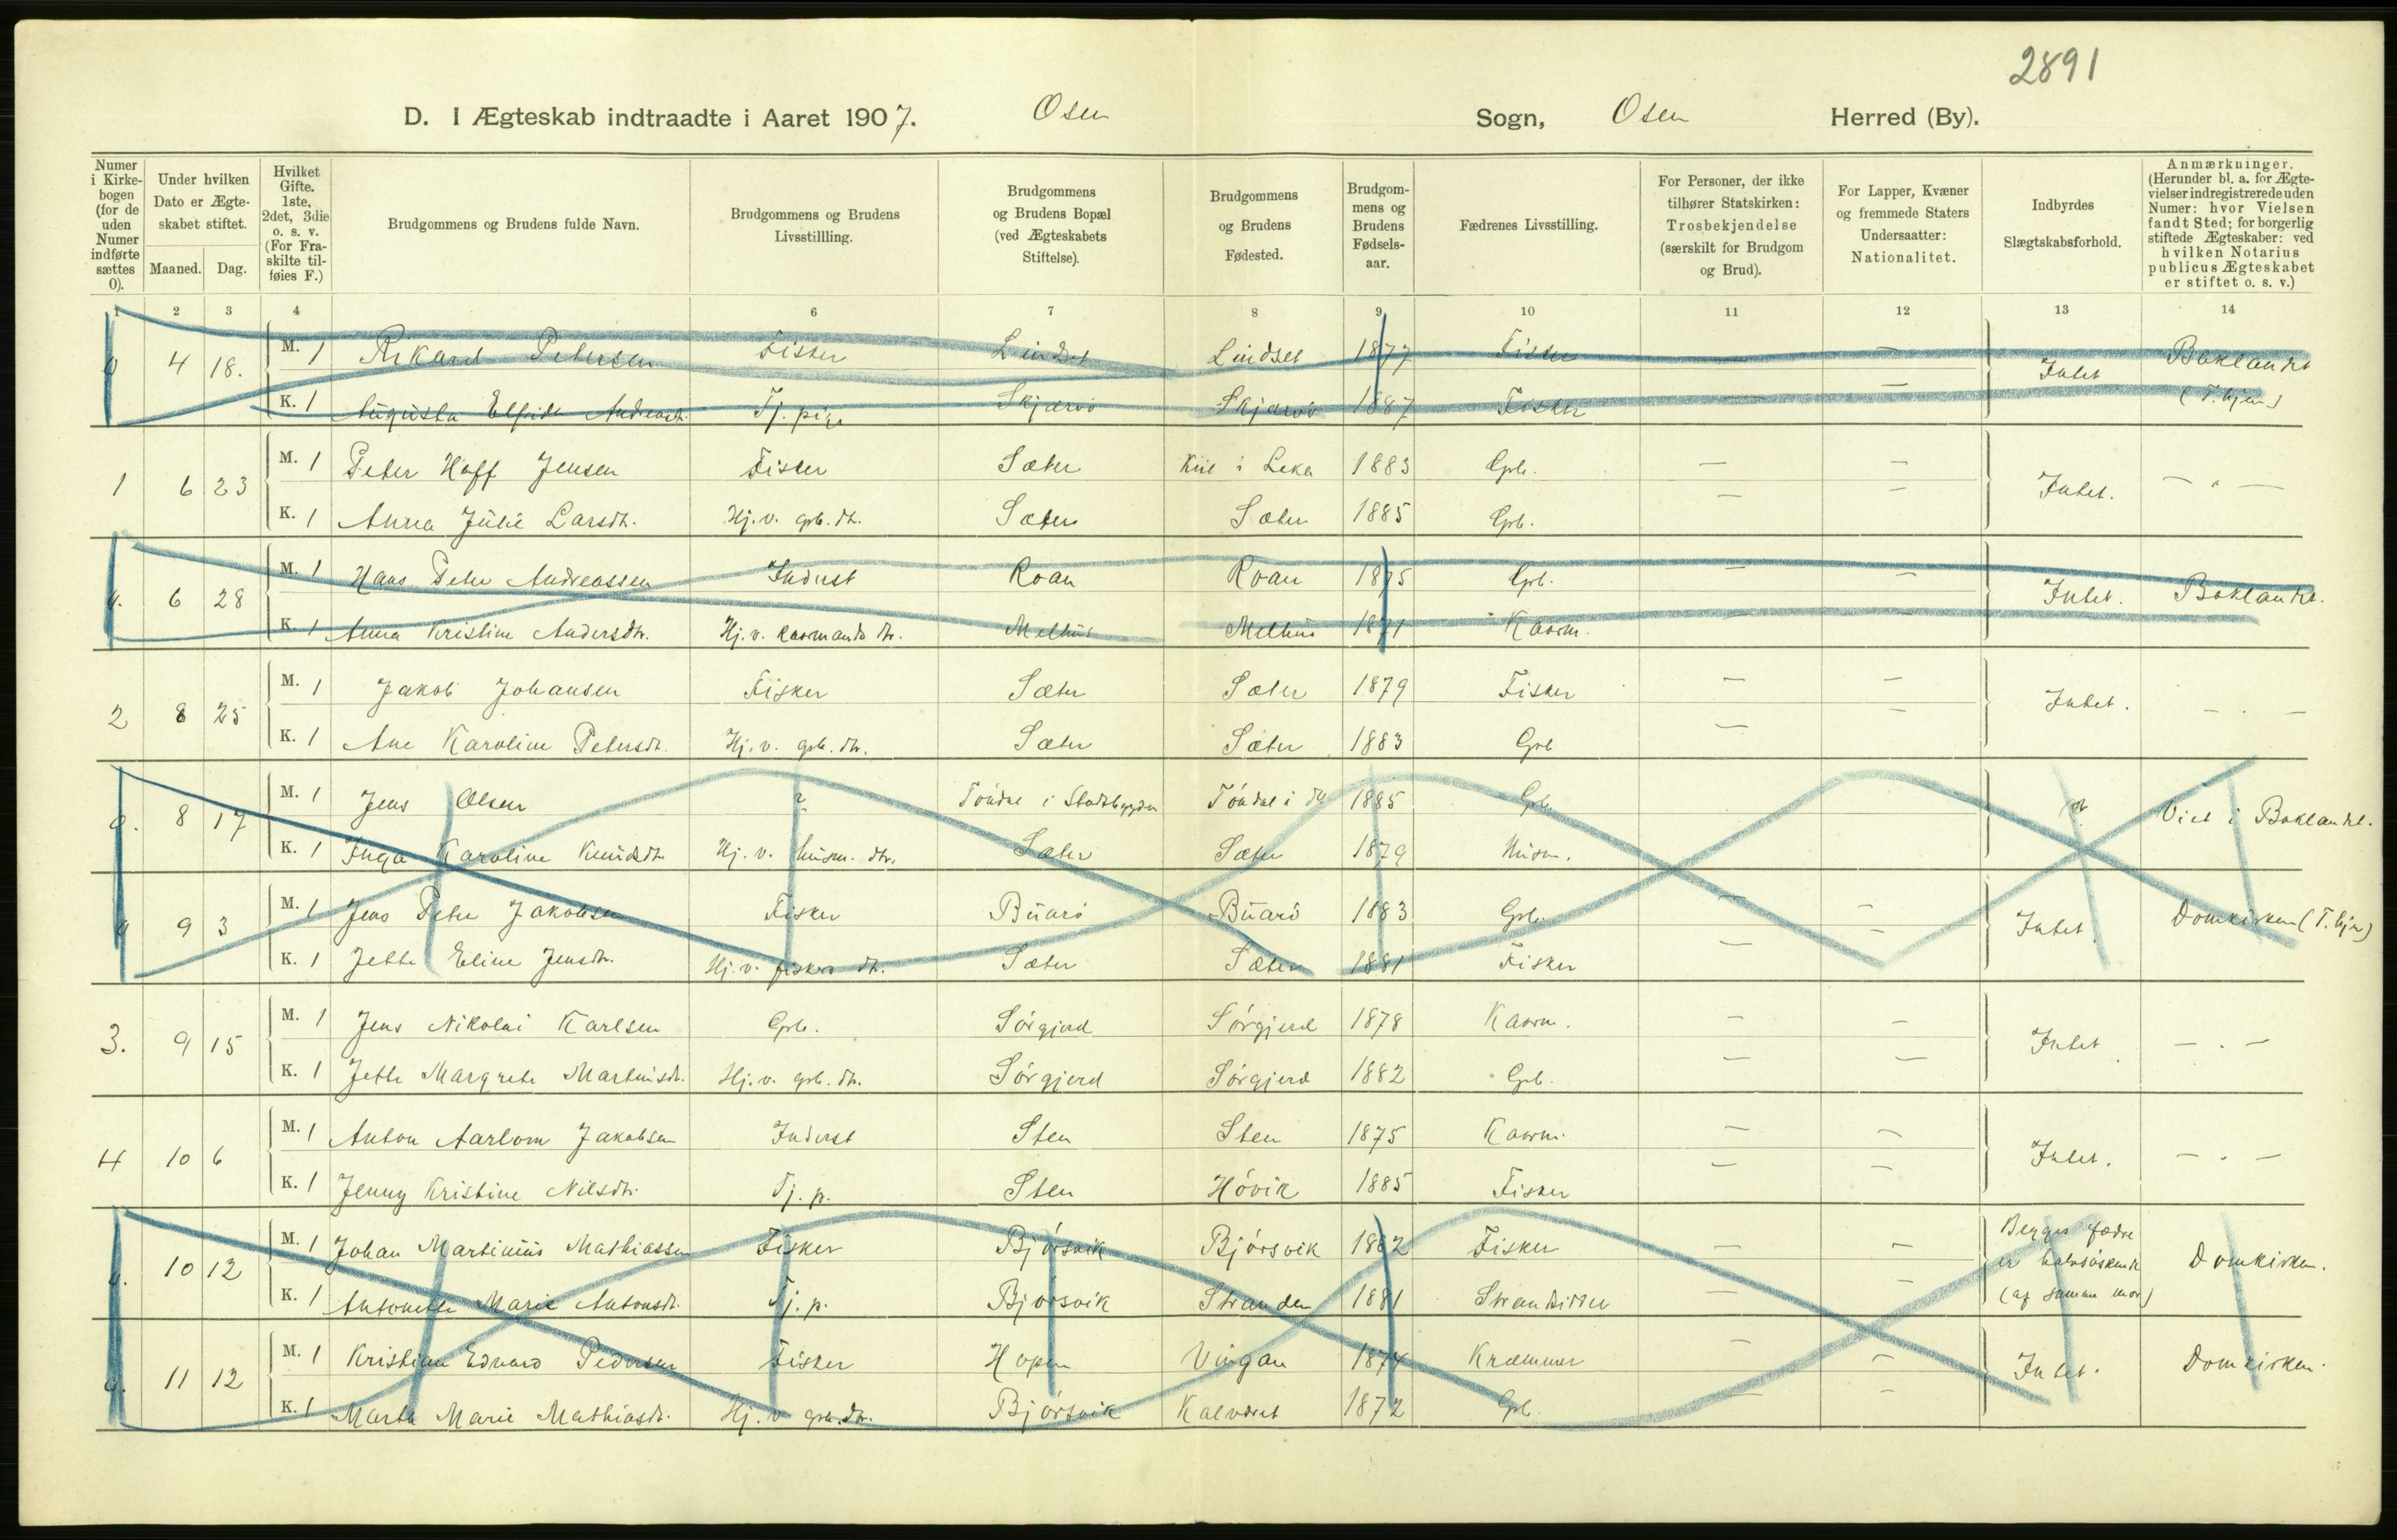 2891
D. I Ægteskab indtraadte i Aaret 1907. Osen Sogn, Osen Herred (By).
Numer i Kirkebogen (for de uden Numer indførte sættes 0).
Under hvilken Dato er Ægteskabet stiftet.
Maaned. Dag.
Hvilket Gifte. 1ste, 2det, 3die o. s. v. (For Fraskilte tilføies F.)
Brudgommens og Brudens fulde Navn.
Brudgommens og Brudens Livsstillling.
Brudgommens og Brudens Bopæl (ved Ægteskabets Stiftelse).
Brudgommens og Brudens Fødested.
Brudgommens og Brudens Fødselsaar.
Fædrenes Livsstilling.
For Personer, der ikke tilhører Statskirken: Trosbekjendelse (særskilt for Brudgom og Brud).
For Lapper, Kvæner og fremmede Staters Undersaatter: Nationalitet.
Indbyrdes Slægtskabsforhold.
Anmærkninger. (Herunder bl. a. for Ægtevielser indregistrerede uden Numer: hvor Vielsen fandt Sted; for borgerlig stiftede Ægteskaber: ved hvilken Notarius publicus Ægteskabet er stiftet o. s. v.)
1 2 3 4 6 7 8 9 10 11 12 13 14
0 4 18. M. 1 Rikard Petersen Fisker Lindset Lindset 1877 Fisker — Intet Baklandet
K. 1 Augusta Elfrida Andreasdt. Tj. pige Skjærvö Skjærvö 1887 Fisker — (T.hjem)
1 6 23 M. 1 Peter Hoff Jensen Fisker Sæter Kiil i Leka 1883 Grb. — — Intet. — " —
K. 1 Anna Julie Larsdt. Hj. v. grb. dt. Sæter Sæter 1885 Grb. — —
0. 6 28 M. 1 Hans Peter Andreassen Inderst Roan Roan 1875 Grb. — — Intet. Baklandet.
K. 1 Anna Kristine Andersdt. Hj. v. kaarmands dt. Melhus Melhus 1871 Kaarm.
2 8 25 M. 1 Jakob Johansen Fisker Sæter Sæter 1879 Fisker — — Intet. — . —
K. 1 Ane Karoline Petersdt. Hj. v. grb. dt. Sæter Sæter 1883 Grb — —
0. 8 17 M. 1 Jens Olsen ? Töndel i Stadsbygden Töndel i do 1885 Grb. ? Viet i Baklandet.
K. 1 Inga Karoline Knudsdt. Hj. v. husm. dtr. Sæter Sæter 1879 Husm.
0 9 3 M. 1 Jens Peter Jakobsen Fisker Buarö Buarö 1883 Grb. — — Intet. Domkirken (T.hjem)
K. 1 Jette Eline Jensdt. Hj. v. fiskers dt. Sæter Sæter 1881 Fisker — —
3. 9 15 M. 1 Jens Nikolai Karlsen Grb. Sörgjerd Sörgjerd 1878 Kaarm. — — Intet. — . —
K. 1 Jette Margrete Martinsdt. Hj. v. grb. dt. Sörgjerd Sörgjerd 1882 Grb. — —
4 10 6 M. 1 Anton Aarlom Jakobsen Inderst Sten Sten 1875 Kaarm. — — Intet. — . —
K. 1 Jenny Kristine Nilsdt. Tj. p. Sten Hövik 1885 Fisker — —
0. 10 12 M. 1 Johan Martinius Mathiassen Fisker Björsvik Björsvik 1882 Fisker — — Begges fædre er halvsöskende (af samme mor) Domkirken.
K. 1 Antonette Marie Antonsdt. Tj. p. Björsvik Stranden 1881 Strandsidder — —
0. 11 12 M. 1 Kristian Edvard Pedersen Fisker Hopen Vingan 1874 Kræmmer — — Intet. Domkirken.
K. 1 Marta Marie Mathiasdt. Hj. v. grb. dt. Björsvik Kalvdret 1872 Grb. — —